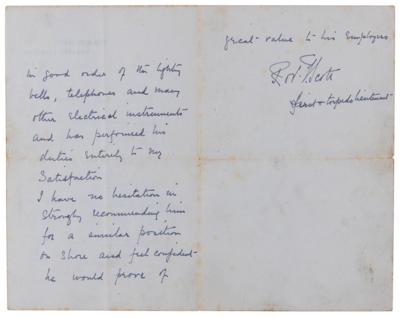 in good order of the lighting
bells, telephones and many
other Electrical instruments
and has performed his
duties Entirely to my
Satisfaction
I have no hesitation in
Strongly recommending him
for a similar position
on Shore and feel confident
he would prove of
great value to his Employers
Rob. F. Scott
Lieut & torpedo lieutenant